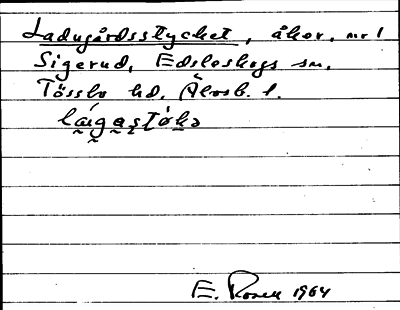 Ladugårdsstycket, åker, nr 1
Sigerud, Edsleskogs sn.
Tössbo hd. Älvsb. l.
E. Rosell 1964